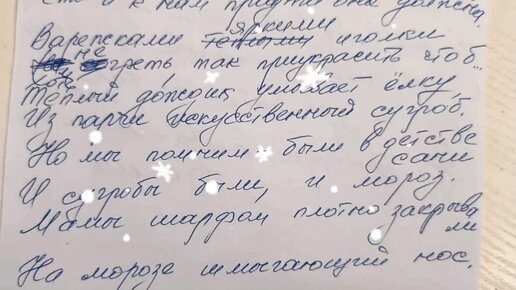 к ним придти она должна.
яркими
Варежками тёплыми иголки
не
греть так приукрасить чтоб...
Тёплый дождик умывает ёлку,
Из парчи искуственный сугроб.
Но мы помним.. были в детстве
сани
И сугробы были, и мороз.
Мамы шарфом плотно закрыва
ли
На морозе шмыгающий нос.